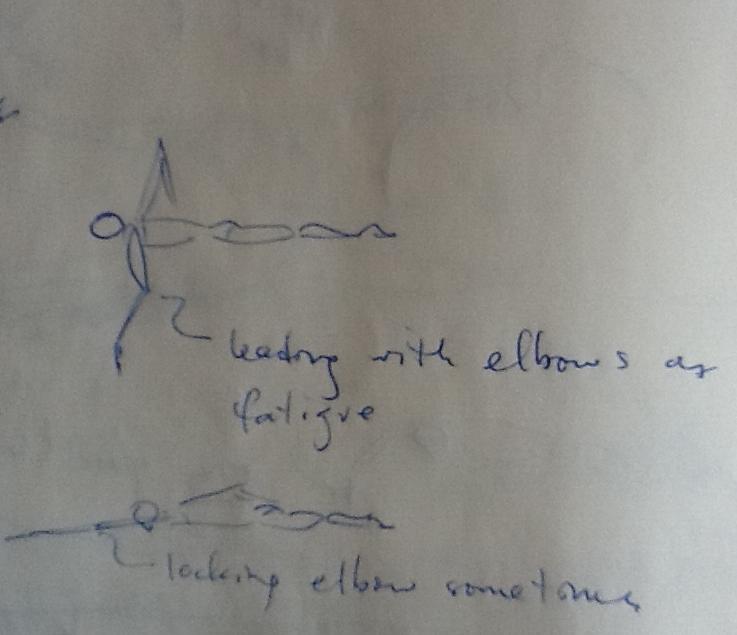 leading with elbows as
fatigue
locking elbow sometimes